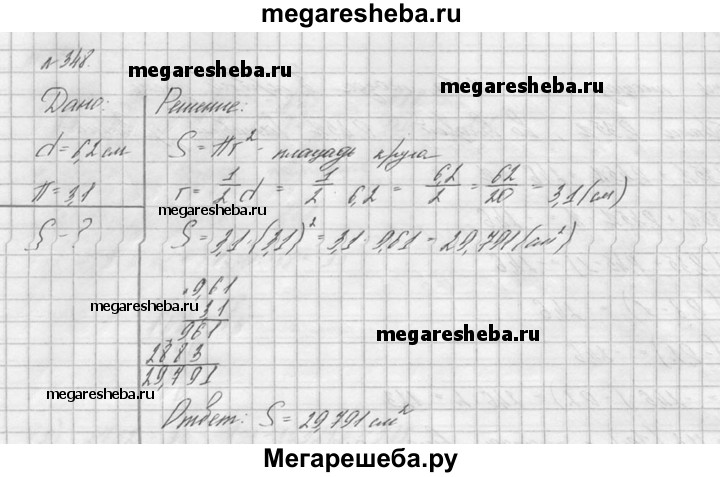 megaresheba.ru
№ 348.
megaresheba.ru
Дано:
Решение:
d = 6,2 см
π = 3,1
S - ?
S = πr² - площадь круга
r = 1/2 d = 1/2 · 6,2 = 6,2/2 = 62/20 = 3,1 (см)
megaresheba.ru
S = 3,1 · (3,1)² = 3,1 · 9,61 = 29,791 (см²)
9,61
3,1
961
2883
29,791
megaresheba.ru
megaresheba.ru
megaresheba.ru
Ответ: S = 29,791 см²
Мегарешеба.ру